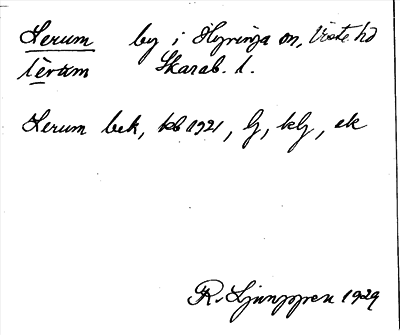 Lerum by i Hyringa sn, Viste hd
lèrum Skarab. l.
Lerum bek, kb 1921, lj, klj, ek
R. Ljunggren 1929